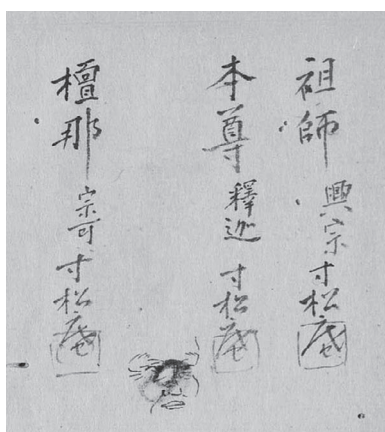 祖師 興宗 寸松庵
本尊 釋迦 寸松庵
檀那 宗可 寸松庵